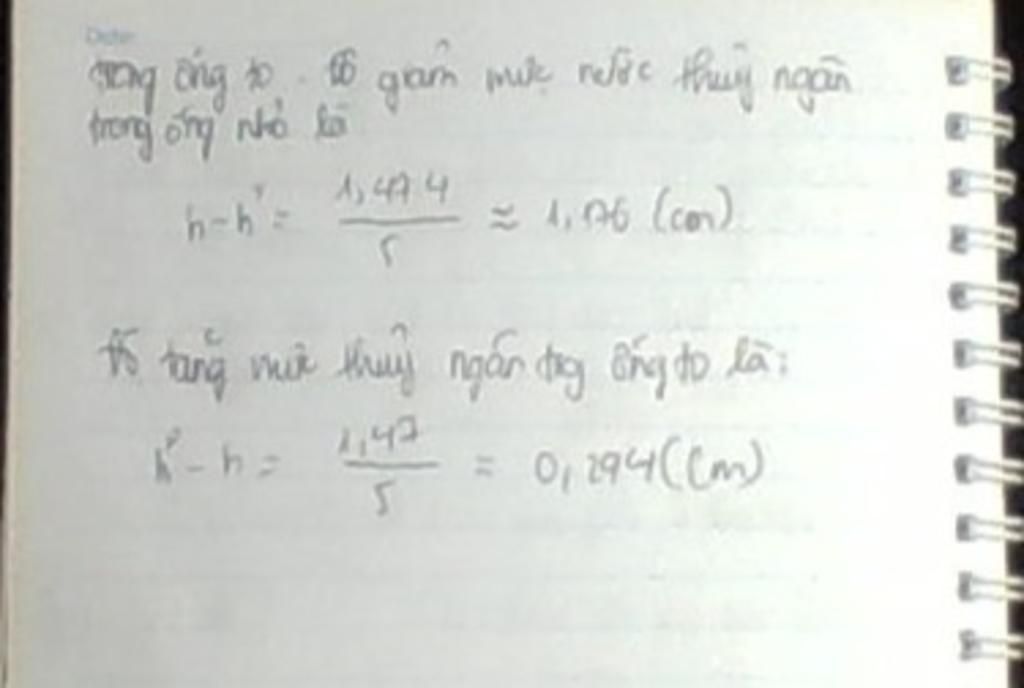 Date
trong ống to. Độ giảm mực nước thuỷ ngân
trong ống nhỏ là
h - h' = 1,47 4 / 5 ≈ 1,176 (cm)
Độ tăng mức thuỷ ngân trg ống to là:
h'' - h = 1,47 / 5 = 0,294 (cm)